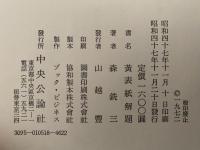 ©一九七二
検印廃止
昭和四十七年三月一日印刷
昭和四十七年三月十日発行
書名 黄表紙解題
定價一六〇〇圓
著者 森銑三
発行者 山越豊
印刷 図書印刷株式会社
製本 協和製本株式会社
製函 ブック・ビジネス
發行所 中央公論社
東京都中央区京橋二ー一
電話（五六一）五九二一
振替東京三四
3095-010518-4622